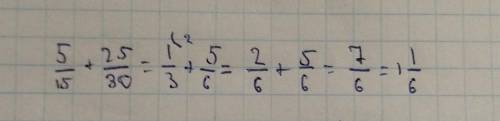 5/15 + 25/30 = 1/3 (2 + 5/6 = 2/6 + 5/6 = 7/6 = 1 1/6